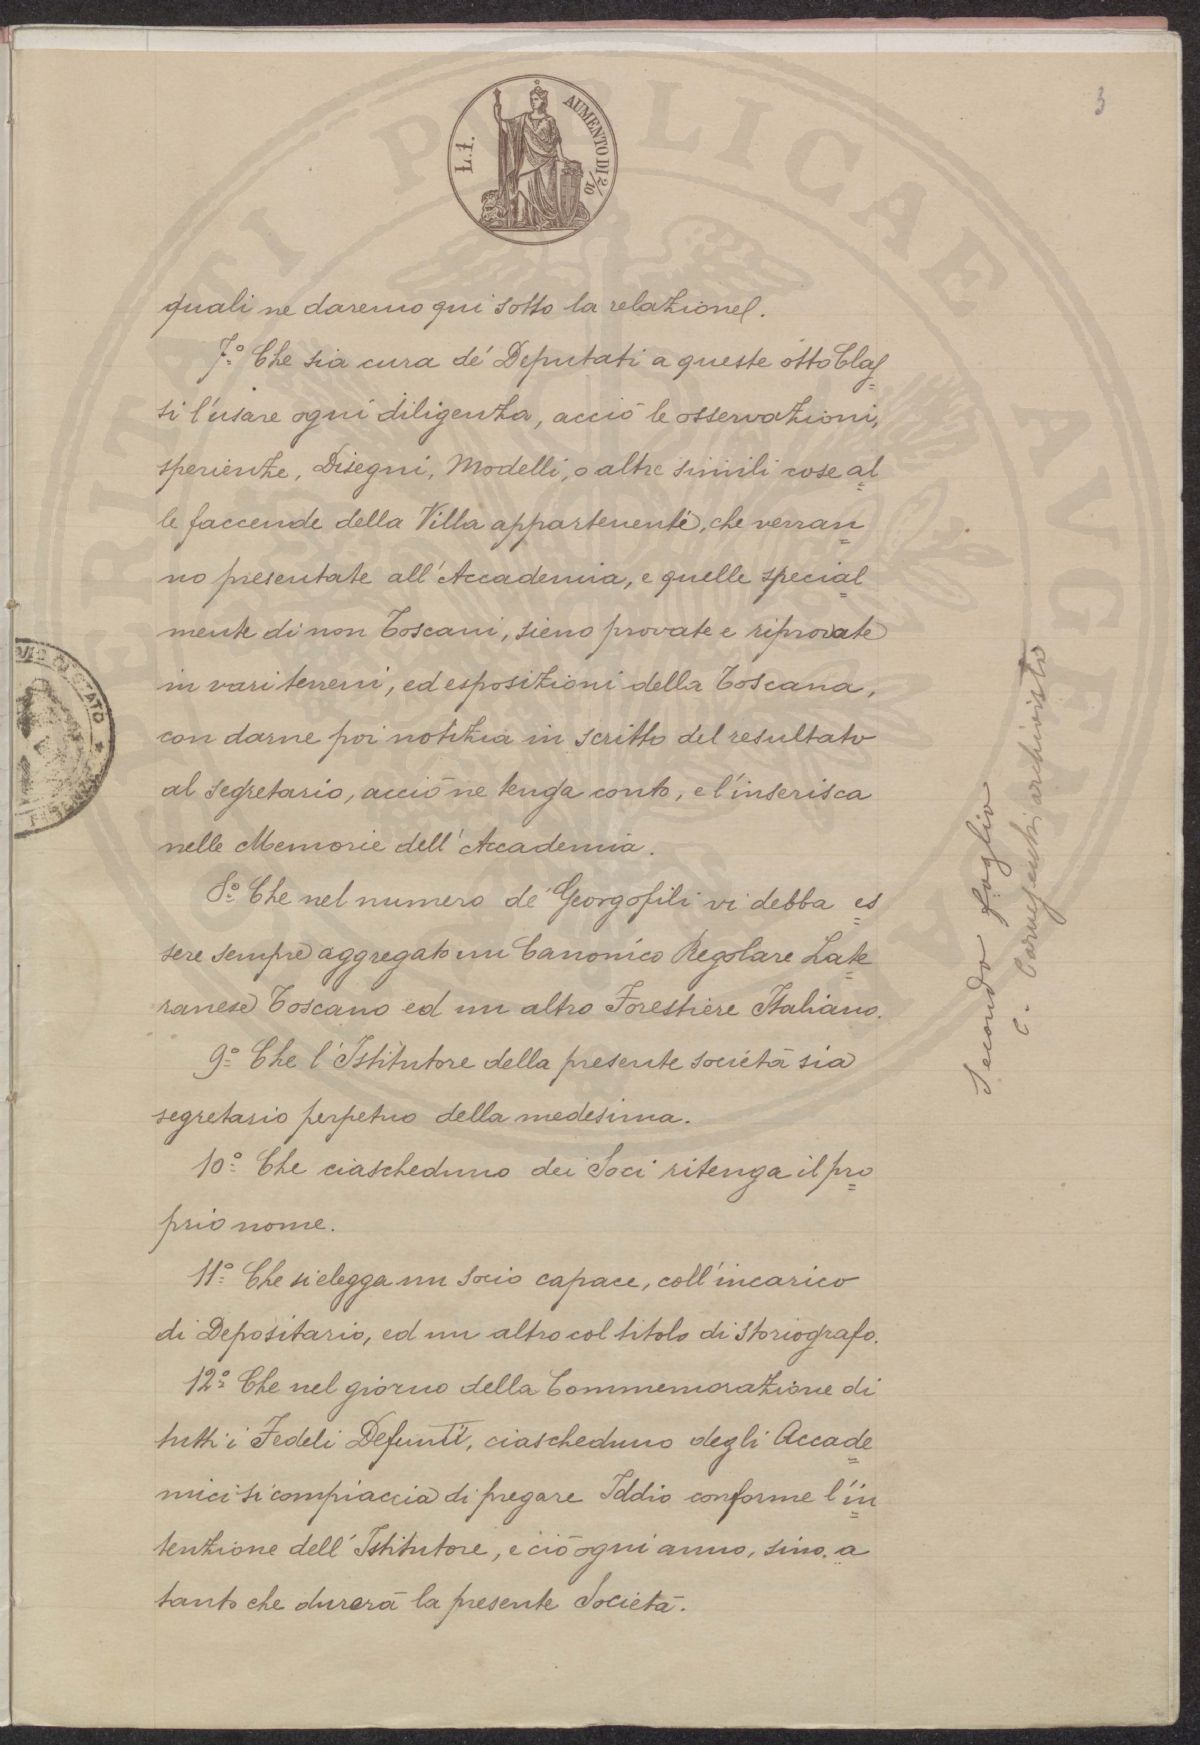 3
L. 1.
AUMENTO DI 2/10
quali ne daremo qui sotto la relazione.
7.° Che sia cura de' Deputati a queste otto Clas=
si l'usare ogni diligenza, acciò le osservazioni,
sperienze, Disegni, Modelli, o altre simili cose al=
le faccende della Villa appartenenti, che verran=
no presentate all'Accademia, e quelle special=
mente di non Toscani, sieno provate e riprovate
in vari terreni, ed esposizioni della Toscana,
con darne poi notizia in scritto del resultato
al segretario, acciò ne tenga conto, e l'inserisca
nelle Memorie dell'Accademia.
8.° Che nel numero de' Georgofili vi debba es=
sere sempre aggregato un Canonico Regolare Late=
ranese Toscano ed un altro Forestiere Italiano.
9.° Che l'Istitutore della presente società sia
segretario perpetuo della medesima.
10.° Che ciascheduno dei Soci ritenga il pro=
prio nome.
11.° Che si elegga un socio capace, coll'incarico
di Depositario, ed un altro col titolo di Storiografo.
12.° Che nel giorno della Commemorazione di
tutti i Fedeli Defunti, ciascheduno degli Accade=
mici si compiaccia di pregare Iddio conforme l'in=
tenzione dell'Istitutore, e ciò ogni anno, sino a
tanto che durerà la presente Società.
Secondo foglio
C. Carnesecchi archivista